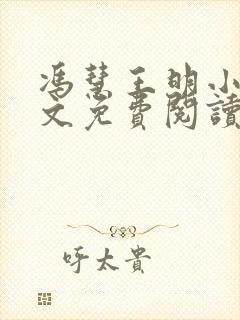 馮慧王明小
文免費閱讀
呼太貴